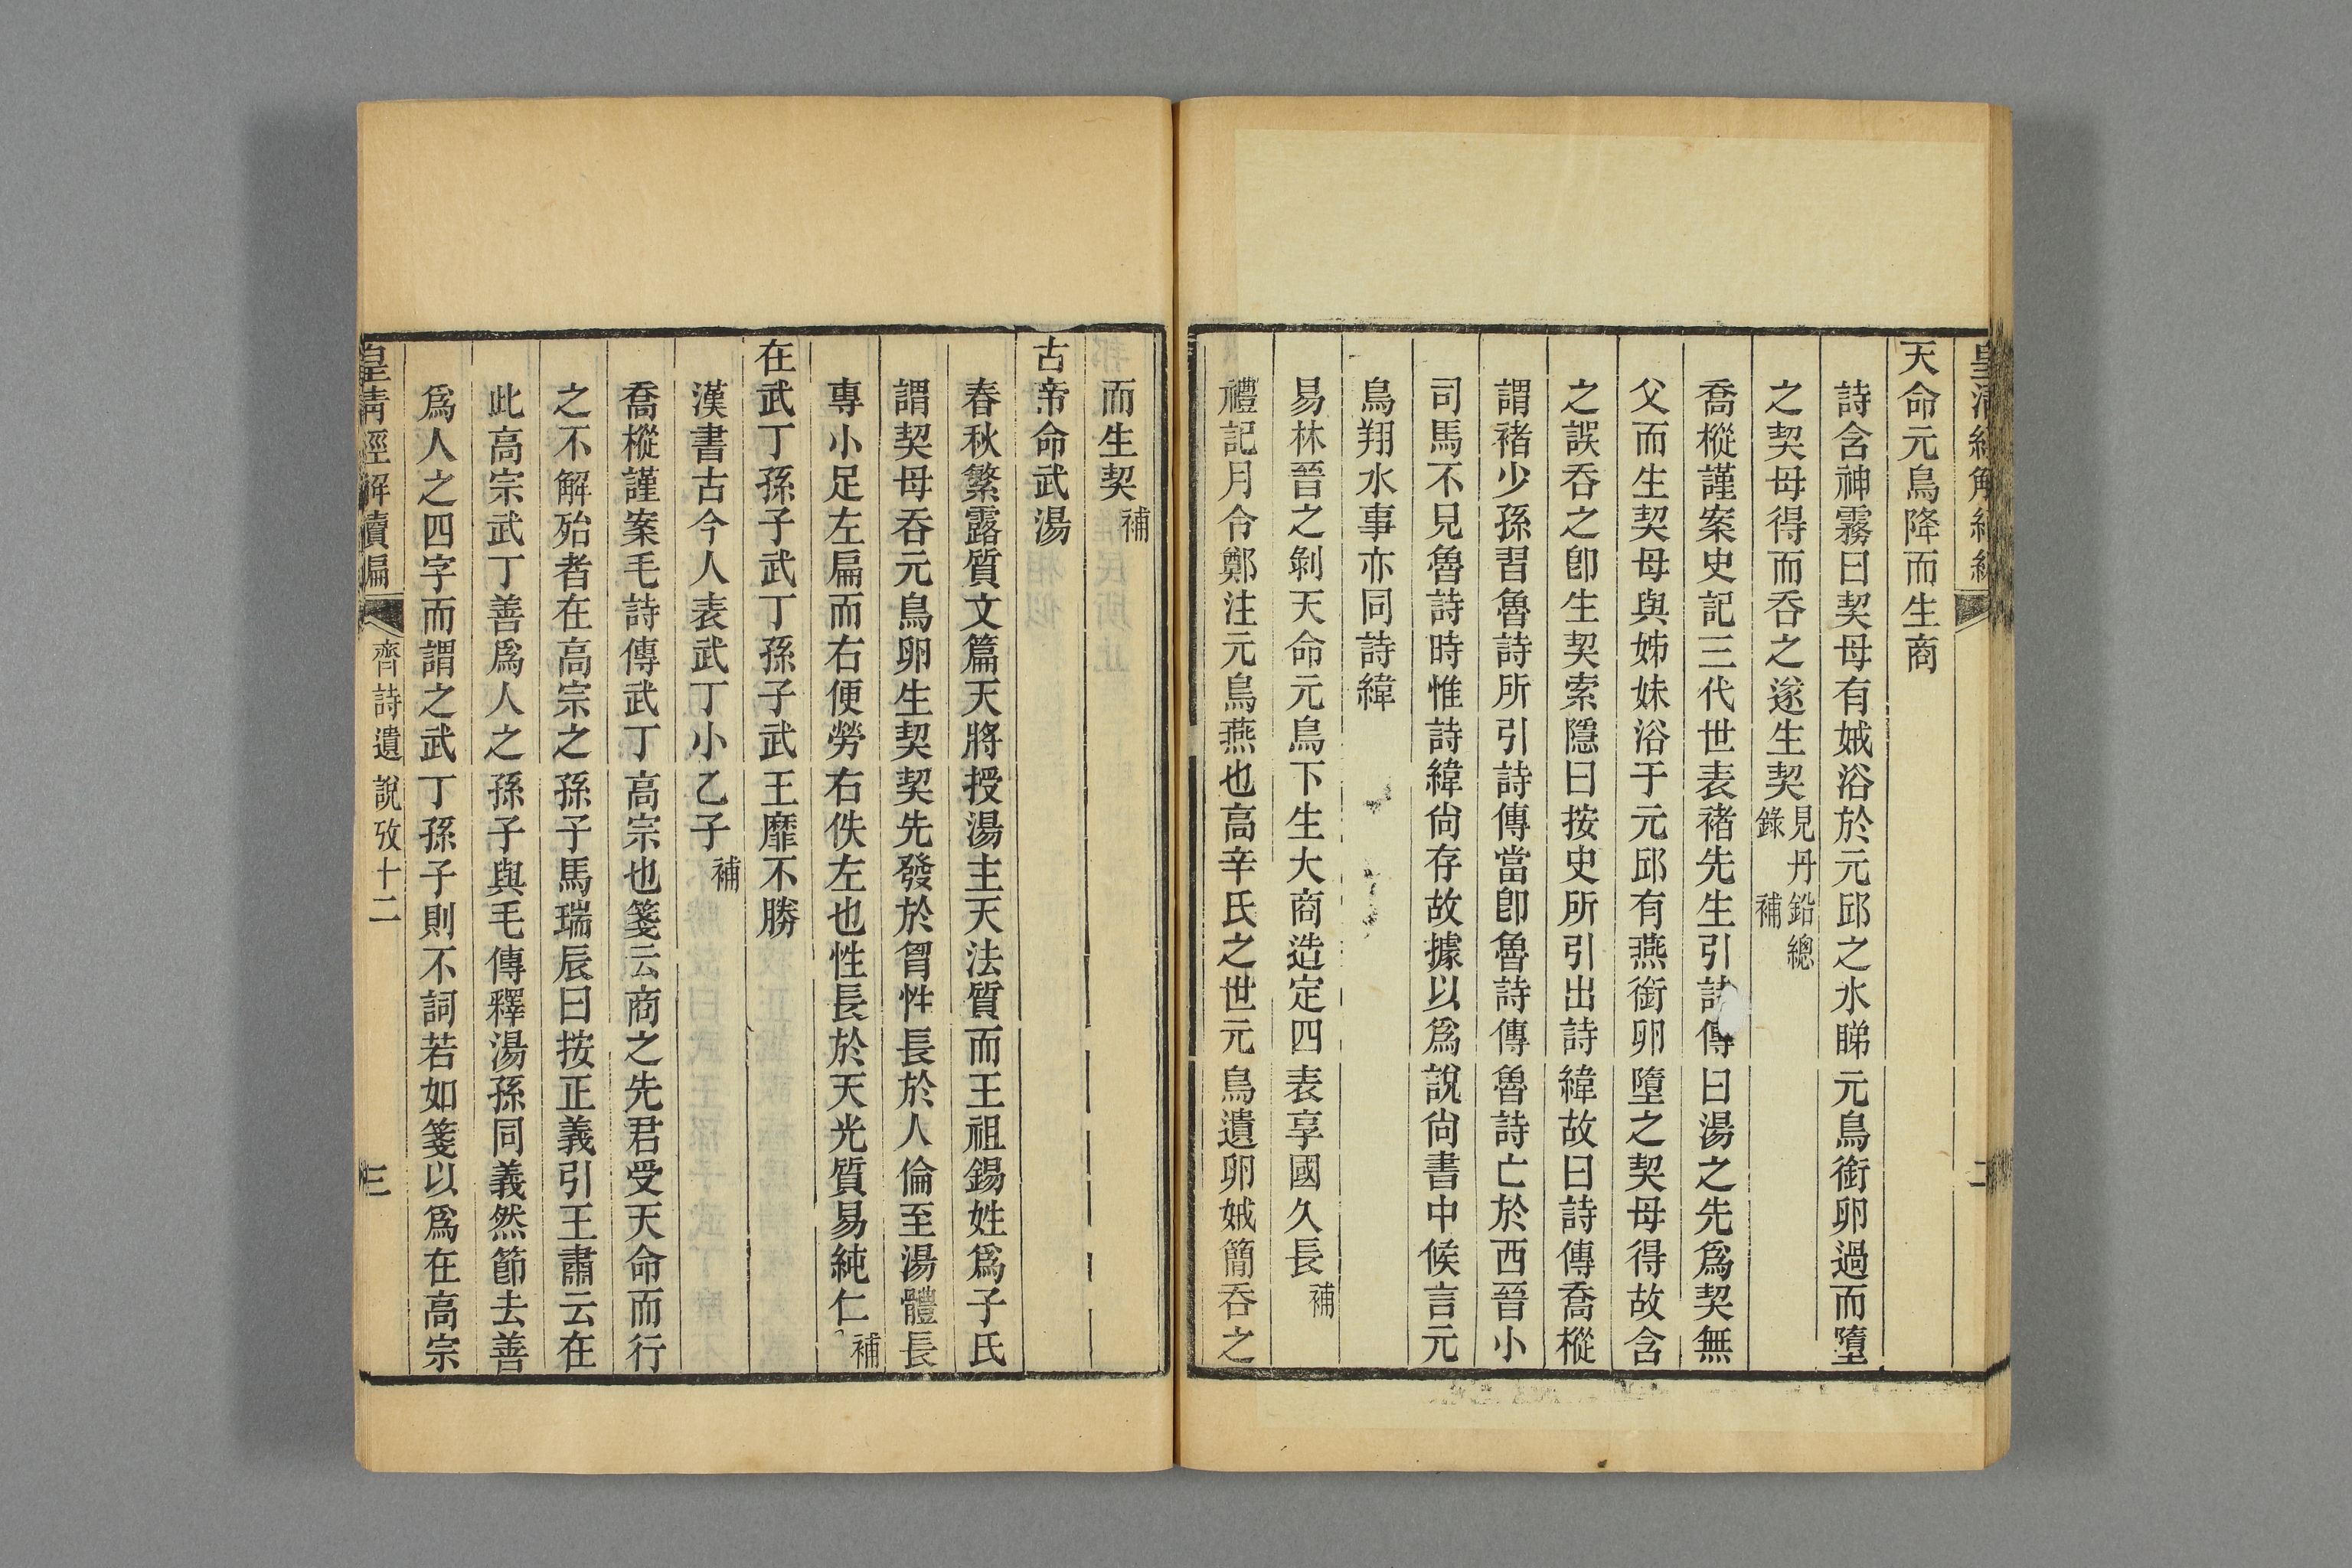 天命元鳥降而生商
詩含神霧曰契母有娀浴於元邱之水睇元鳥銜卵過而墮
之契母得而吞之遂生契見丹鉛總錄補
喬樅謹案史記三代世表褚先生引詩傳曰湯之先爲契無
父而生契母與姊妹浴于元邱有燕銜卵墮之契母得故含
之誤吞之卽生契索隱曰按史所引出詩緯故曰詩傳喬樅
謂褚少孫習魯詩所引詩傳當卽魯詩傳魯詩亡於西晉小
司馬不見魯詩時惟詩緯尙存故據以爲說尙書中候言元
鳥翔水事亦同詩緯
易林晉之剝天命元鳥下生大商造定四表享國久長補
禮記月令鄭注元鳥燕也高辛氏之世元鳥遺卵娀簡吞之
而生契補
古帝命武湯
春秋繁露質文篇天將授湯主天法質而王祖錫姓爲子氏
謂契母吞元鳥卵生契契先發於胷性長於人倫至湯體長
專小足左扁而右便勞右佚左也性長於天光質易純仁補
在武丁孫子武丁孫子武王靡不勝
漢書古今人表武丁小乙子補
喬樅謹案毛詩傳武丁高宗也箋云商之先君受天命而行
之不解殆者在高宗之孫子馬瑞辰曰按正義引王肅云在
此高宗武丁善爲人之孫子與毛傳釋湯孫同義然節去善
爲人之四字而謂之武丁孫子則不詞若如箋以爲在高宗
皇清經解續編
齊詩遺說攷十二
三